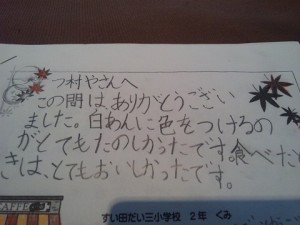 つ村やさんへ
この間は、ありがとうござい
ました。白あんに色をつけるの
がとてもたのしかったです。食べたと
きは、とてもおいしかったです。
CAFFE
すい田だい三小学校 2年 くみ